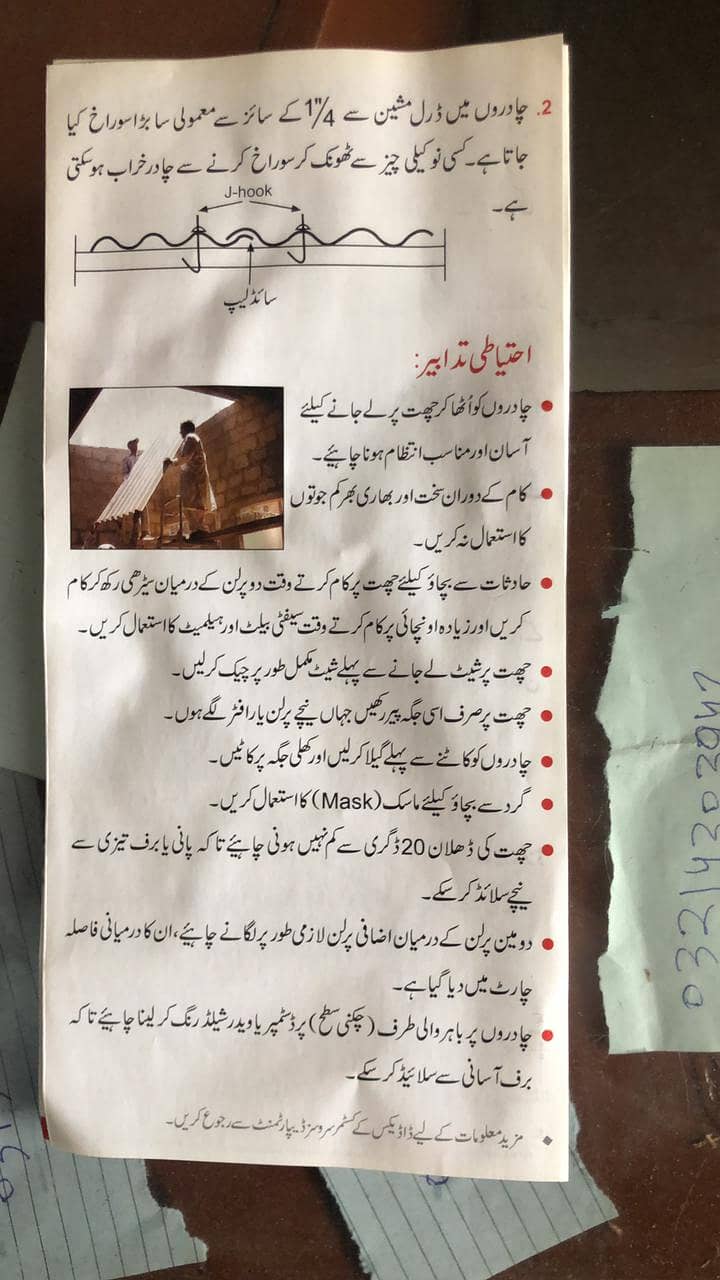 2. چادروں میں ڈرل مشین سے 1/4" کے سائز سے معمولی سا بڑا سوراخ کیا
جاتا ہے۔ کسی نوکیلی چیز سے ٹھونک کر سوراخ کرنے سے چادر خراب ہوسکتی
ہے۔
J-hook
سائڈ لیپ
احتیاطی تدابیر:
● چادروں کو اُٹھا کر چھت پر لے جانے کیلئے
آسان اور مناسب انتظام ہونا چاہیئے۔
● کام کے دوران سخت اور بھاری بھرکم جوتوں
کا استعمال نہ کریں۔
● حادثات سے بچاؤ کیلئے چھت پر کام کرتے وقت دو پرلن کے درمیان سیڑھی رکھ کر کام
کریں اور زیادہ اونچائی پر کام کرتے وقت سیفٹی بیلٹ اور ہیلمیٹ کا استعمال کریں۔
● چھت پر شیٹ لے جانے سے پہلے شیٹ مکمل طور پر چیک کرلیں۔
● چھت پر صرف اسی جگہ پیر رکھیں جہاں نیچے پرلن یا رافٹر لگے ہوں۔
● چادروں کو کاٹنے سے پہلے گیلا کرلیں اور کھلی جگہ پر کاٹیں۔
● گرد سے بچاؤ کیلئے ماسک (Mask) کا استعمال کریں۔
● چھت کی ڈھلان 20 ڈگری سے کم نہیں ہونی چاہیئے تا کہ پانی یا برف تیزی سے
نیچے سلائڈ کر سکے۔
● دو مین پرلن کے درمیان اضافی پرلن لازمی طور پر لگانے چاہیئے، ان کا درمیانی فاصلہ
چارٹ میں دیا گیا ہے۔
● چادروں پر باہر والی طرف (چکنی سطح) پر ڈسٹمپر یا ویدر شیلڈ رنگ کر لینا چاہیئے تا کہ
برف آسانی سے سلائیڈ کر سکے۔
◆ مزید معلومات کے لیے ڈاڈیکس کے کسٹمر سروسز ڈیپارٹمنٹ سے رجوع کریں۔